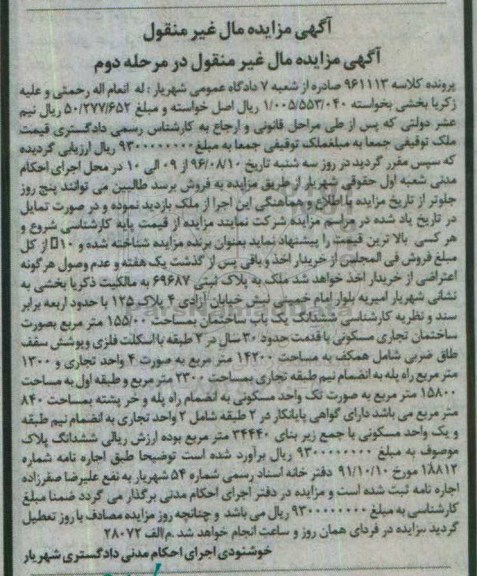 آگهی مزایده مال غیر منقول
آگهی مزایده مال غیر منقول در مرحله دوم
پرونده کلاسه ۹۶۱۱۱۳ صادره از شعبه ۷ دادگاه عمومی شهریار : له انعام اله رحمتی و علیه
زکریا بخشی بخواسته ۱/۰۰۵/۵۵۳/۰۴۰ ریال اصل خواسته و مبلغ ۵۰/۲۷۷/۶۵۲ ریال نیم
عشر دولتی که پس از طی مراحل قانونی و ارجاع به کارشناس رسمی دادگستری قیمت
ملک توقیفی جمعا به مبلغملک توقیفی جمعا به مبلغ ۹۳۰۰۰۰۰۰۰۰ ریال ارزیابی گردیده
که سپس مقرر گردید در روز سه شنبه تاریخ ۹۶/۰۸/۱۰ از ۰۹ الی ۱۰ در محل اجرای احکام
مدنی شعبه اول حقوقی شهریار از طریق مزایده به فروش برسد طالبین می توانند پنج روز
جلوتر از تاریخ مزایده با اطلاع و هماهنگی این اجرا از ملک بازدید نموده و در صورت تمایل
در تاریخ یاد شده در مراسم مزایده شرکت نمایند مزایده از قیمت پایه کارشناسی شروع و
هر کسی بالا ترین قیمت را پیشنهاد نماید بعنوان برنده مزایده شناخته شده و ۱۰ از کل
مبلغ فروش فی المجلس از خریدار اخذ و باقی پس از گذشت یک هفته و عدم وصول هرگونه
اعتراضی از خریدار اخذ خواهد شد ملک به پلاک ثبتی ۶۹۶۸۷ به مالکیت ذکریا بخشی به
نشانی شهریار امیریه بلوار امام خمینی نبش خیابان آزادی ۴ پلاک ۱۲۵ با حدود اربعه برابر
سند و نظریه کارشناسی ششدانگ یک باب ساختمان بمساحت ۱۵۵/۰۰ متر مربع بصورت
ساختمان تجاری مسکونی با قدمت حدود ۳۰ سال در ۲ طبقه با اسکلت فلزی و پوشش سقف
طاق ضربی شامل همکف به مساحت ۱۴۲۰۰ متر مربع به صورت ۴ واحد تجاری و ۱۳۰۰
متر مربع راه پله به انضمام نیم طبقه تجاری بمساحت ۲۳۰۰ متر مربع و طبقه اول به مساحت
۱۵۸۰۰ متر مربع به صورت تک واحد مسکونی به انضمام راه پله و خر پشته بمساحت ۸۴۰
متر مربع می باشد دارای گواهی پایانکار در ۲ طبقه شامل ۲ واحد تجاری به انضمام نیم طبقه
و یک واحد مسکونی با جمع زیر بنای ۳۴۴۴۰ متر مربع بوده ارزش ریالی ششدانگ پلاک
موصوف به مبلغ ۹۳۰۰۰۰۰۰۰۰ ریال برآورد شده است توضیحا طبق اجاره نامه شماره
۱۸۸۱۲ مورخ ۹۱/۱۰/۱۰ دفتر خانه اسناد رسمی شماره ۵۴ شهریار به نفع علیرضا صفرزاده
اجاره نامه ثبت شده است و مزایده در دفتر اجرای احکام مدنی برگذار می گردد ضمنا مبلغ
کارشناسی به مبلغ ۹۳۰۰۰۰۰۰۰۰ ریال می باشد و چنانچه روز مزایده مصادف با روز تعطیل
گردید مزایده در فردای همان روز و ساعت انجام خواهد شد .م/الف ۲۸۰۷۲
خوشنودی اجرای احکام مدنی دادگستری شهریار